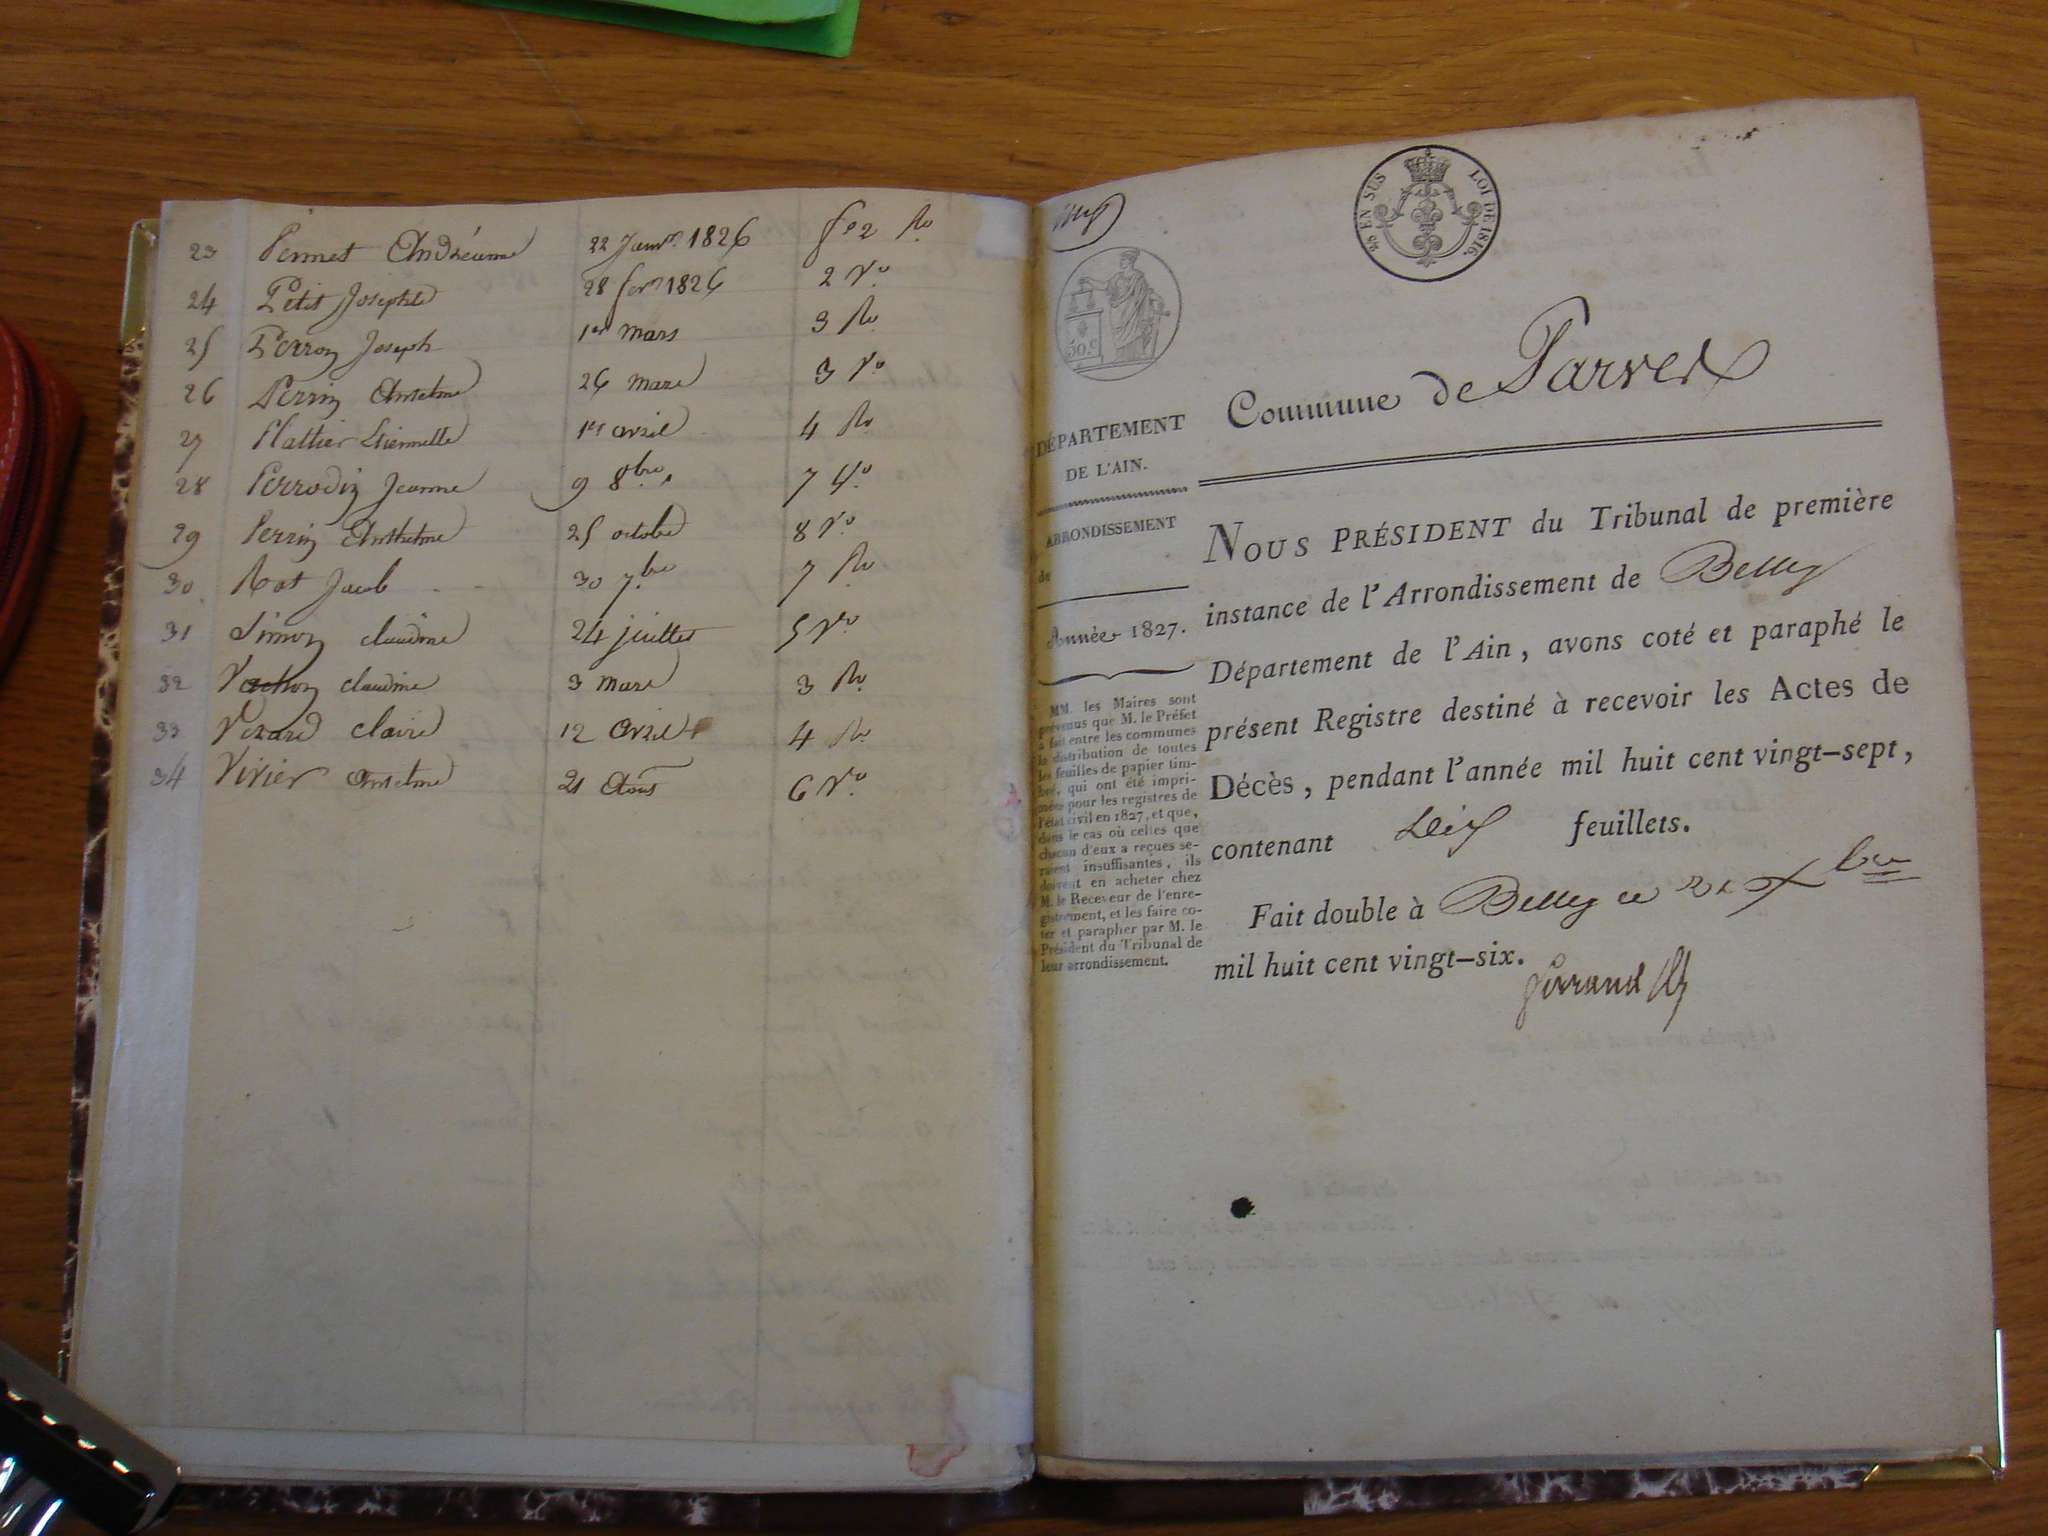 23 Permet Andréanne 22 Janv. 1826 fo 2 Ro
24 Petit Josephte 28 fevr. 1826 2 Vo
25 Perron Joseph 1er mars 3 Ro
26 Perrin Antelme 26 mars 3 Vo
27 Plattier Etiennette 1er avril 4 Ro
28 Perrodin Jeanne 9 8bre 7 Vo
29 Perrin Anthelme 25 octobre 8 Vo
30 Rat Jacob 30 7bre 7 Ro
31 Simon claudine 24 juillet 5 Vo
32 Vachon claudine 3 mars 3 Ro
33 Vezard Claire 12 avril 4 Ro
34 Vivier Antelme 21 Aout 6 Vo
25 EN SUS LOI DE 1816.
50.c
Commune de Parves
DÉPARTEMENT
DE L'AIN.
ARRONDISSEMENT
de
Année 1827.
MM. les Maires sont
prévenus que M. le Préfet
a fait entre les communes
la distribution de toutes
les feuilles de papier tim-
bré, qui ont été impri-
mées pour les registres de
l'état civil en 1827, et que,
dans le cas où celles que
chacun d'eux a reçues se-
raient insuffisantes, ils
doivent en acheter chez
M. le Receveur de l'enre-
gistrement, et les faire co-
ter et parapher par M. le
Président du Tribunal de
leur arrondissement.
NOUS PRÉSIDENT du Tribunal de première
instance de l'Arrondissement de Belley
Département de l'Ain, avons coté et paraphé le
présent Registre destiné à recevoir les Actes de
Décès, pendant l'année mil huit cent vingt-sept,
contenant Dix feuillets.
Fait double à Belley ce bre
mil huit cent vingt-six.